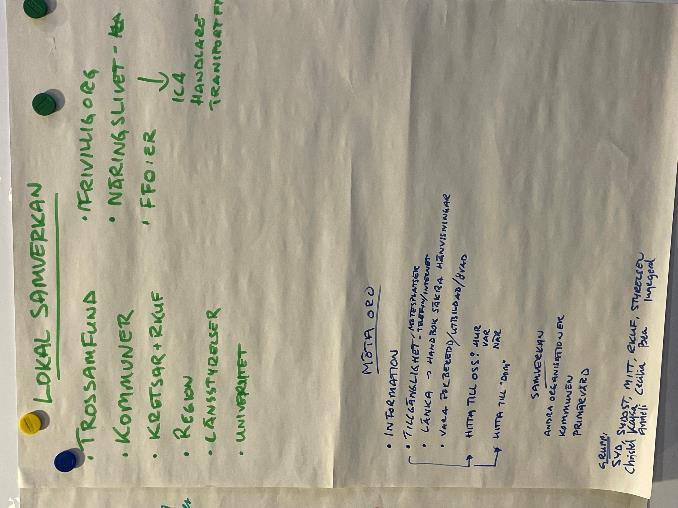 LOKAL SAMVERKAN
• TROSSAMFUND
• KOMMUNER
• KRETSAR + RKUF
• REGION
• LÄNSSTYRELSER
• UNIVERSITET
• FRIVILLIGORG
• NÄRINGSLIVET -
• FFO:ER
ICA
HANDLARE
TRANSPORTFT
MÖTA ORO
• INFORMATION
• TILLGÄNGLIGHET - MÖTESPLATSER
TELEFON/INTERNET
• LÄNKA → HANDBOK SÄKRA HÄNVISNINGAR
• VARA FÖRBEREDD/UTBILDAD/ÖVAD
HITTA TILL OSS? HUR
VAR
NÄR
HITTA TILL "DOM"
SAMVERKAN
ANDRA ORGANISATIONER
KOMMUNEN
PRIMÄRVÅRD
GRUPP:
SYD, SYDOST, MITT, RKUF, STYRELSEN
Christel Kajsa Anneli Cecilia Ingegerd